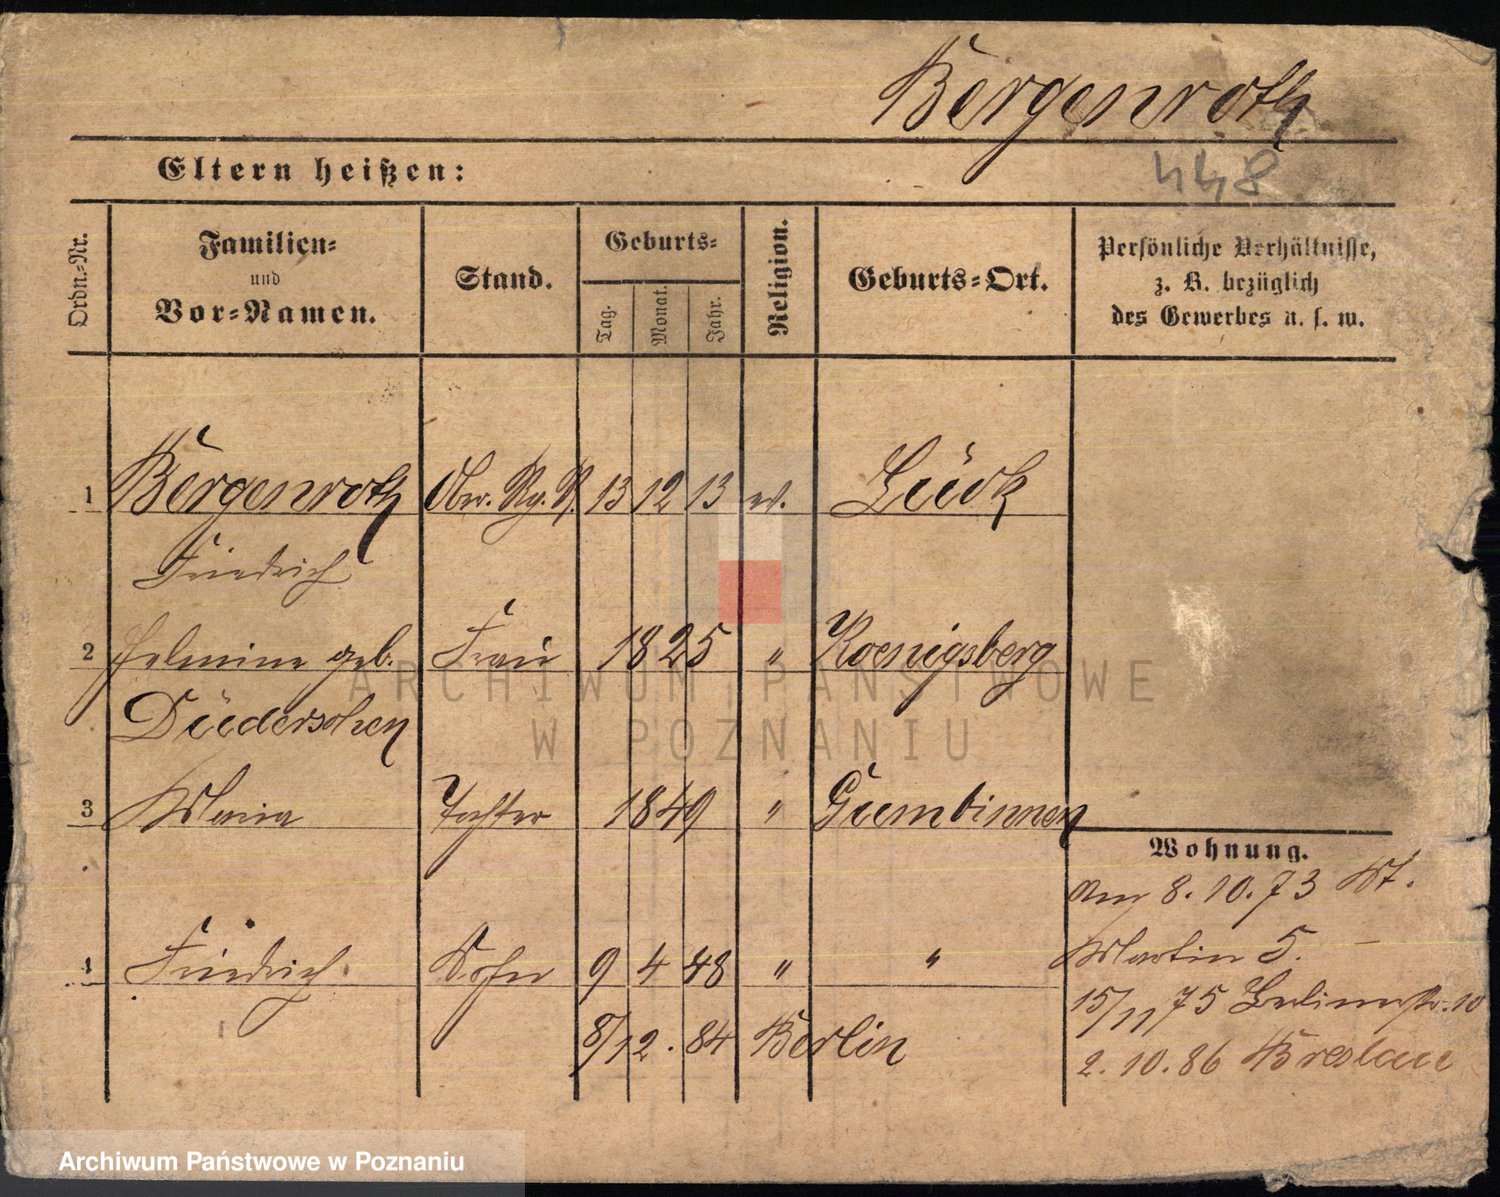 Bergenroth
448
Eltern heißen:
Ordn.-Nr.
Familien-
und
Vor-Namen.
Stand.
Geburts-
Tag.
Monat.
Jahr.
Religion.
Geburts-Ort.
Persönliche Verhältnisse,
z. B. bezüglich
des Gewerbes u. s. w.
1 Bergenroth Ober. Rg. R. 13 12 13 ev. Lück
Friedrich
2 geb. Frau 1825 " Koenigsberg
Düedersohen
ARCHIWUM PAŃSTWOWE
W POZNANIU
3 Maria Tochter 1849 " Gumbinnen
Wohnung.
8. 10. 73 St.
4 Friedrich Sohn 9 4 48 " "
Martin 5.
15/11 75 Berlinerstr. 10
8/12. 84 Berlin
2. 10. 86 Breslau
Archiwum Państwowe w Poznaniu